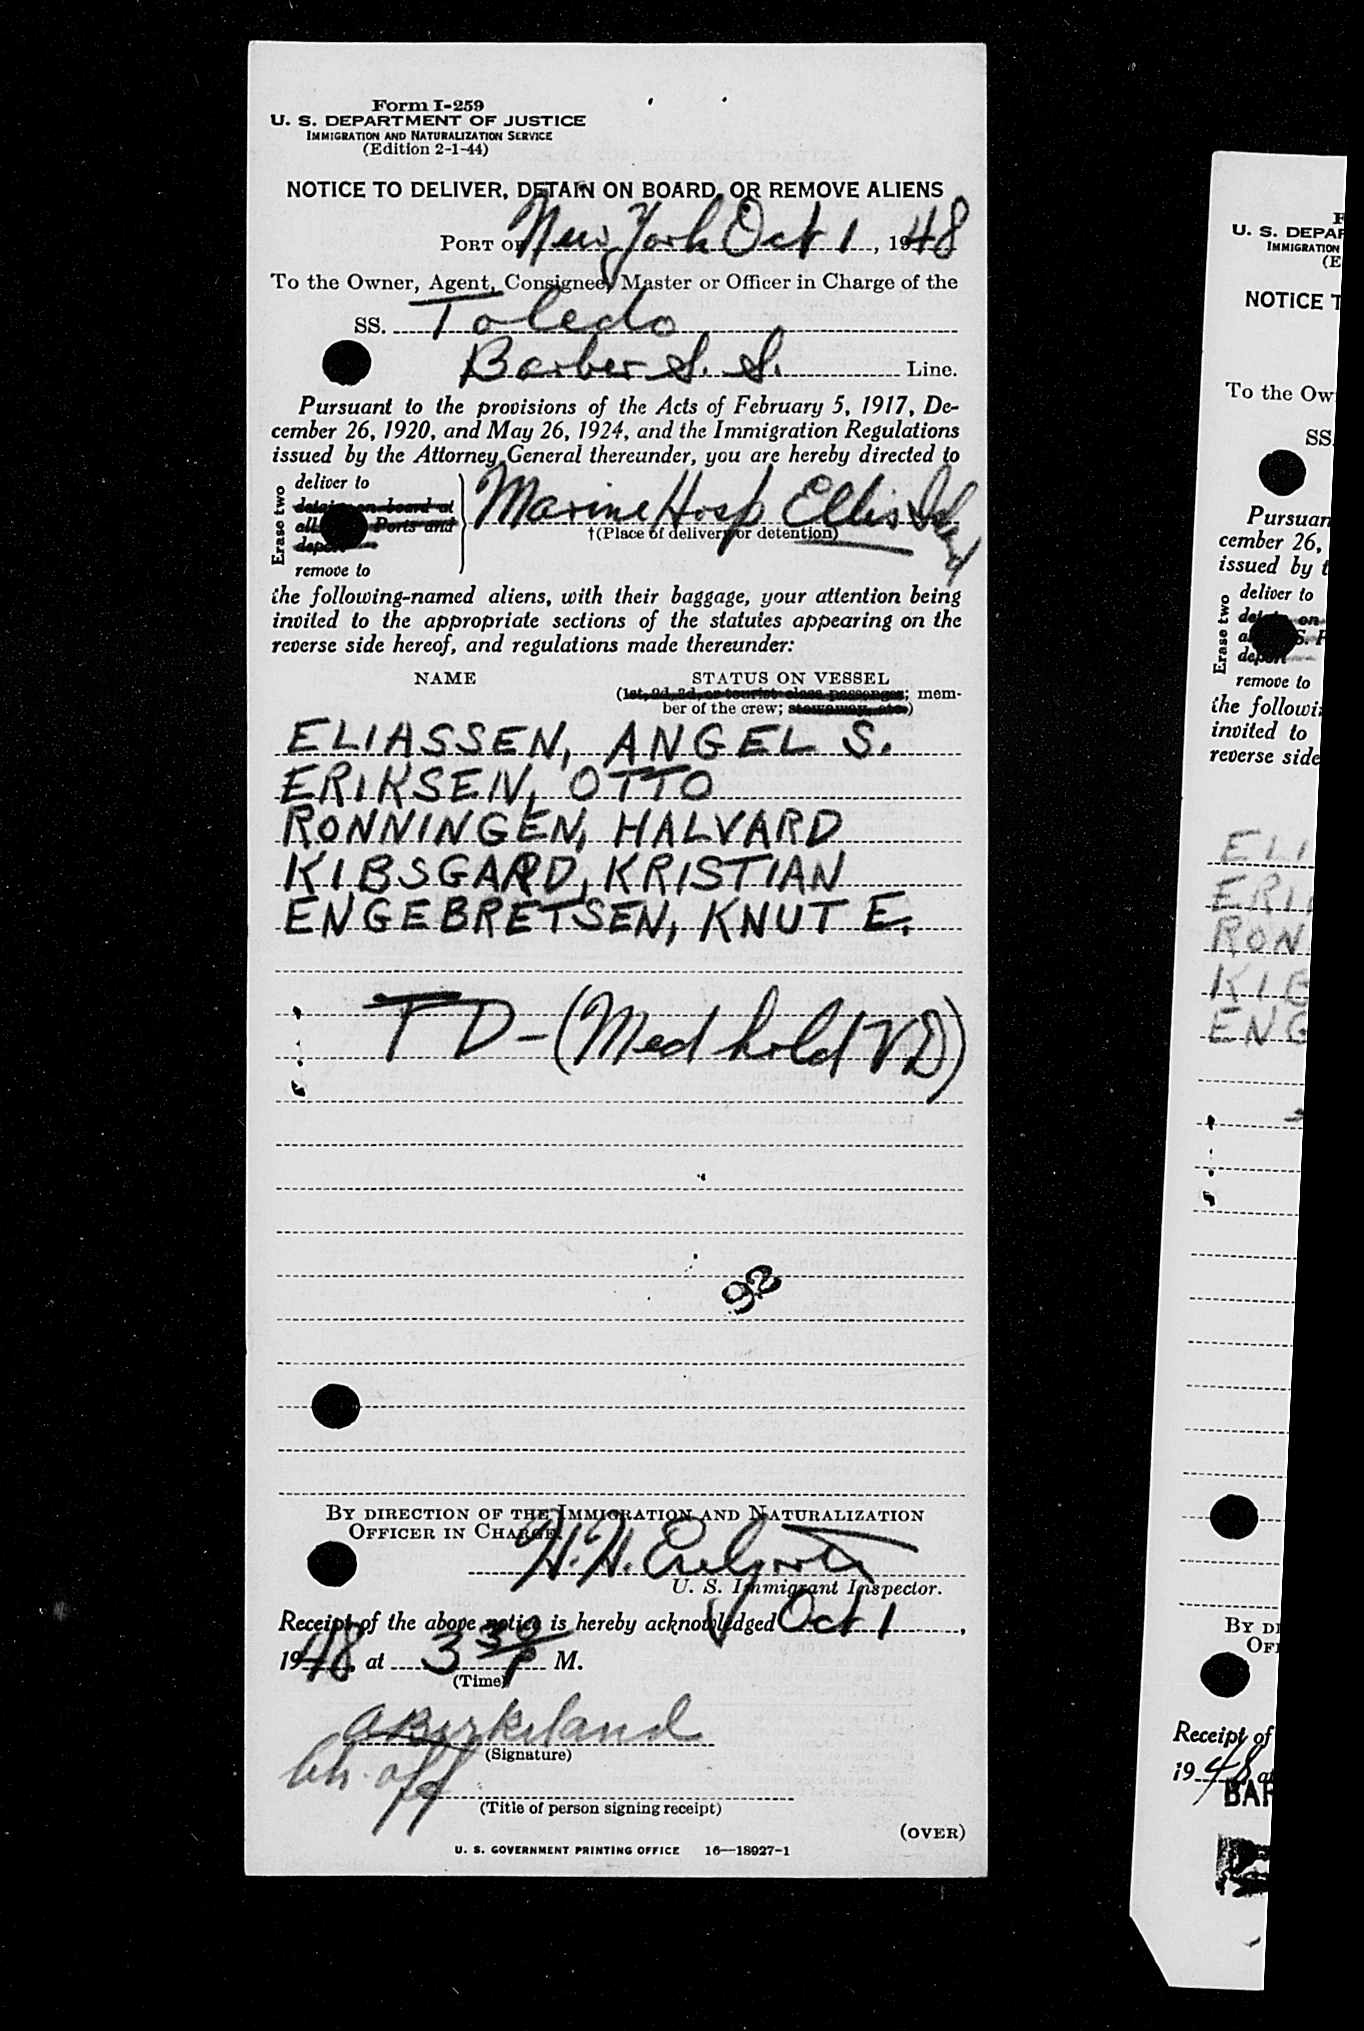 Form I-259
U. S. DEPARTMENT OF JUSTICE
IMMIGRATION AND NATURALIZATION SERVICE
(Edition 2-1-44)
NOTICE TO DELIVER, DETAIN ON BOARD, OR REMOVE ALIENS
PORT OF New York Oct 1, 1948
To the Owner, Agent, Consignee, Master or Officer in Charge of the
SS. Toledo
Barber S. S. Line.
Pursuant to the provisions of the Acts of February 5, 1917, De-
cember 26, 1920, and May 26, 1924, and the Immigration Regulations
issued by the Attorney General thereunder, you are hereby directed to
Erase two
deliver to
detain on board at
all Ports and
deport
remove to
Marine Hosp Ellis Island
†(Place of delivery or detention)
the following-named aliens, with their baggage, your attention being
invited to the appropriate sections of the statutes appearing on the
reverse side hereof, and regulations made thereunder:
NAME STATUS ON VESSEL
(1st, 2d, 3d, or tourist class passenger; mem-
ber of the crew; stowaway, etc.)
ELIASSEN, ANGEL S.
ERIKSEN, OTTO
RONNINGEN, HALVARD
KIBSGARD, KRISTIAN
ENGEBRETSEN, KNUT E.
TD - (Med hold VD)
92
BY DIRECTION OF THE IMMIGRATION AND NATURALIZATION
OFFICER IN CHARGE.
H. H.
U. S. Immigrant Inspector.
Receipt of the above notice is hereby acknowledged Oct 1,
1948, at 3 30 P M.
(Time)
A Birkeland
(Signature)
Ch. off
(Title of person signing receipt)
(OVER)
U. S. GOVERNMENT PRINTING OFFICE 16—18927-1
F
U. S. DEPAR
IMMIGRATION
(E
NOTICE T
To the Ow
SS.
Pursuan
cember 26,
issued by t
Erase two
deliver to
detain on
a S. P
deport
remove to
the followi
invited to
reverse side
ELI
ERI
RON
KIB
ENG
BY DI
OFF
Receipt of
1948, at
BAR